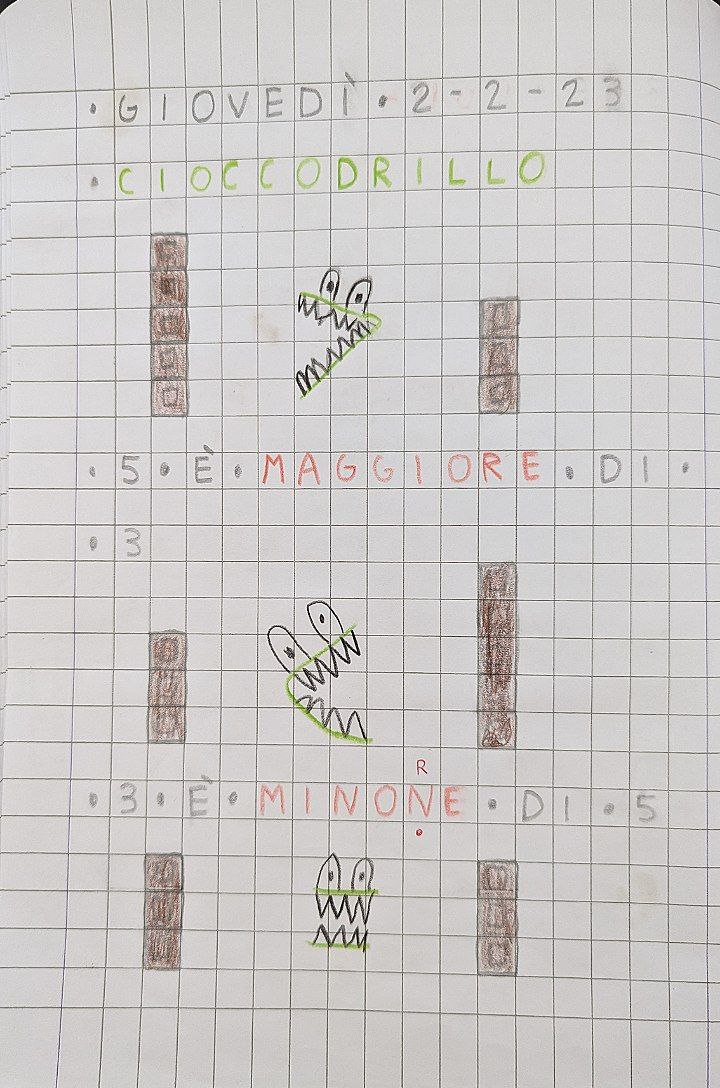 • GIOVEDÌ • 2-2-23
• CIOCCODRILLO
• 5 • È • MAGGIORE • DI •
• 3
R
• 3 • È • MINONE • DI • 5